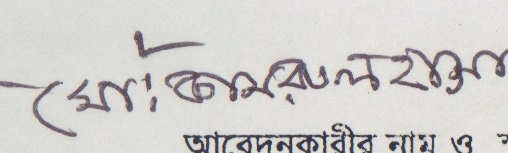 মো: কামরুল হাসান
আবেদনকারীর নাম ও